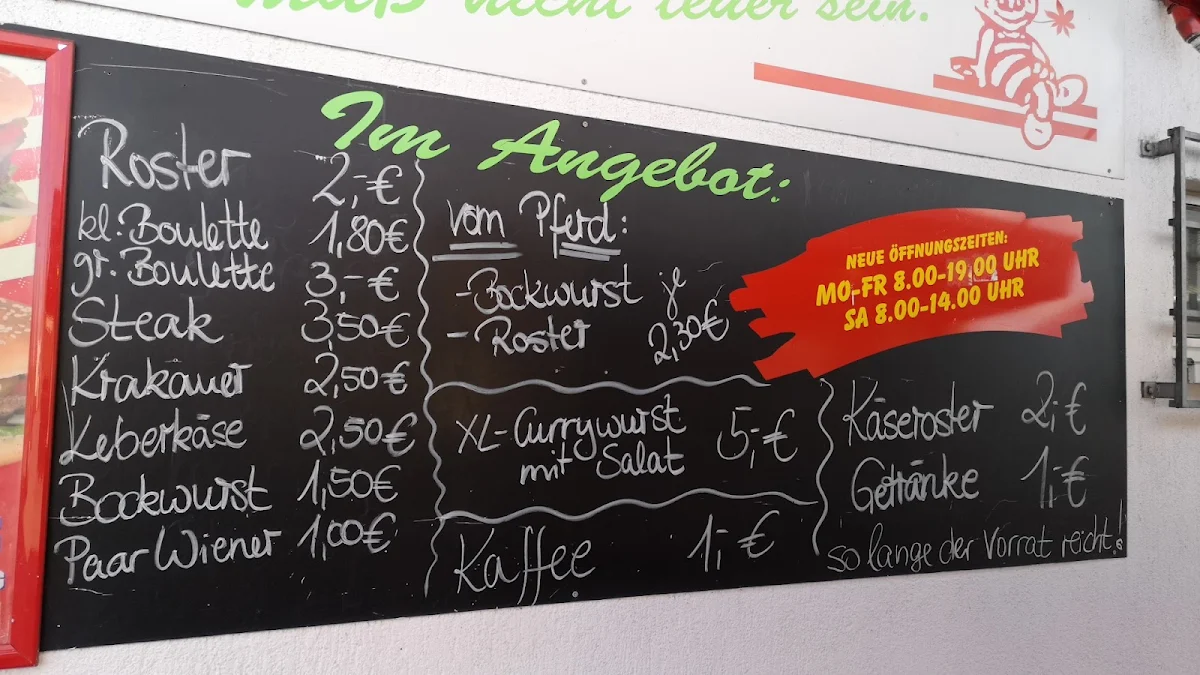 muß nicht teuer sein.
Im Angebot:
Roster 2,-€
kl. Boulette 1,80€
gr. Boulette 3,-€
Steak 3,50€
Krakauer 2,50€
Leberkäse 2,50€
Bockwurst 1,50€
Paar Wiener 1,00€
vom Pferd:
-Bockwurst je
- Roster 2,30€
XL-Currywurst
mit Salat 5,-€
Kaffee 1,-€
NEUE ÖFFNUNGSZEITEN:
MO-FR 8.00-19.00 UHR
SA 8.00-14.00 UHR
Käseroster 2,-€
Getränke 1,-€
so lange der Vorrat reicht!